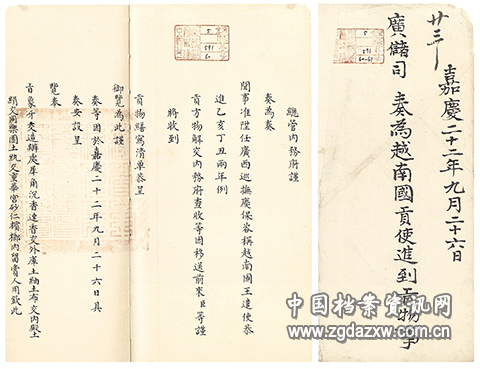 廿三
嘉慶二十二年九月二十六日
廣儲司 奏為越南國貢使進到貢物事
總管内務府謹
奏為奏
聞事准陞任廣西巡撫慶保咨稱越南國王遣使恭
進乙亥丁丑兩年例
貢方物解交内務府查收等因移送前來臣等謹
將收到
貢物繕寫清單恭呈
御覽為此謹
奏等因於嘉慶二十二年九月二十六日具
奏安設呈
覽奉
旨象牙交造辦處犀角沉香速香交外庫土紬土布交内殿土
絹交同樂園土紈交重華宮砂仁檳榔内留賞人用欽此
中国档案资讯网
www.zgdazxw.com.cn